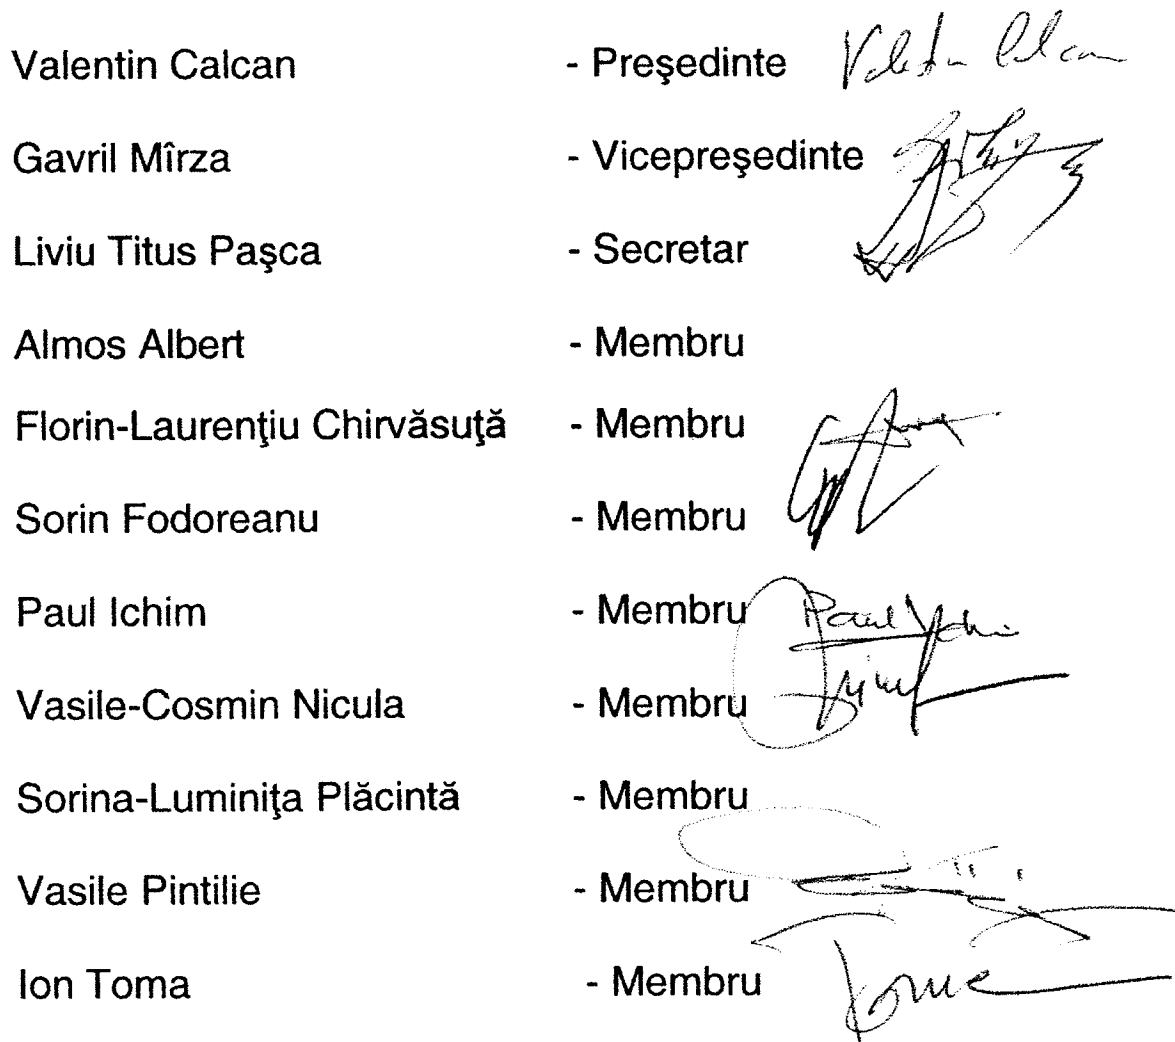 Valentin Calcan - Preşedinte Valentin Calcan
Gavril Mîrza - Vicepreşedinte
Liviu Titus Paşca - Secretar
Almos Albert - Membru
Florin-Laurenţiu Chirvăsuţă - Membru
Sorin Fodoreanu - Membru
Paul Ichim - Membru Paul Ichim
Vasile-Cosmin Nicula - Membru
Sorina-Luminiţa Plăcintă - Membru
Vasile Pintilie - Membru
Ion Toma - Membru Toma